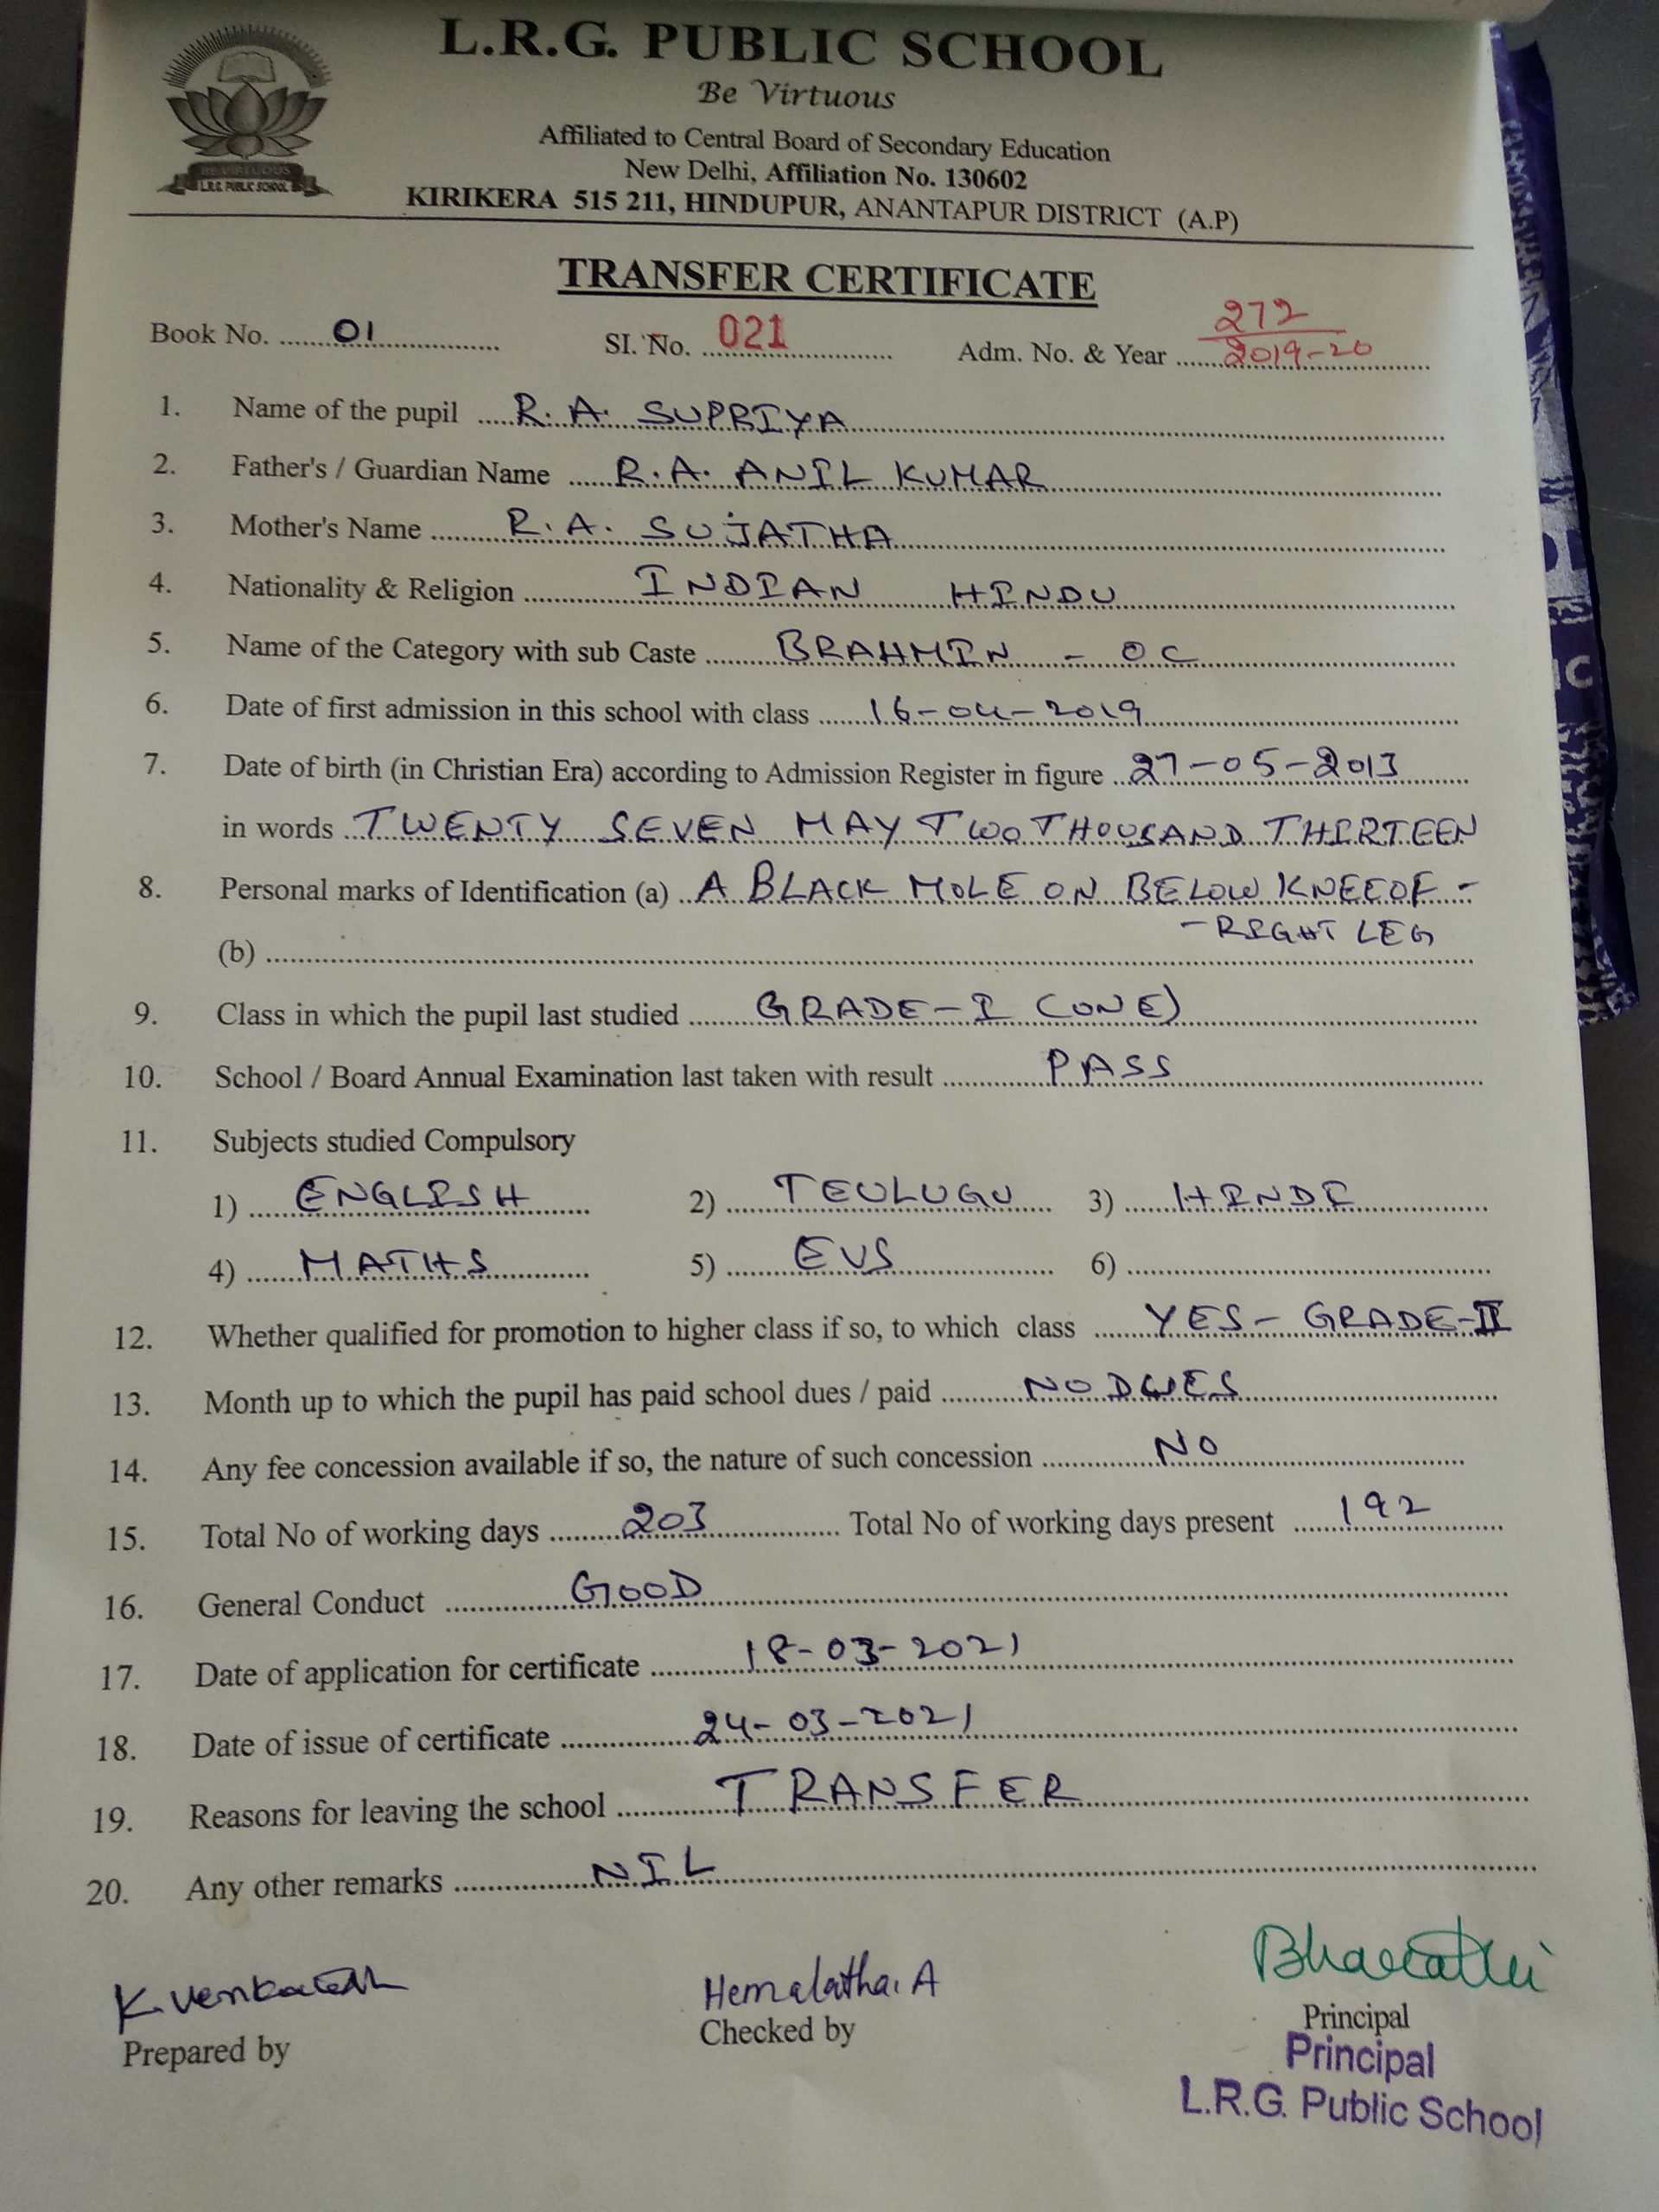 L.R.G. PUBLIC SCHOOL
Be Virtuous
BE VIRTUOUS
L.R.G. PUBLIC SCHOOL
Affiliated to Central Board of Secondary Education
New Delhi, Affiliation No. 130602
KIRIKERA 515 211, HINDUPUR, ANANTAPUR DISTRICT (A.P)
TRANSFER CERTIFICATE
Book No. 01 SI. No. 021 Adm. No. & Year 272 / 2019-20
1. Name of the pupil R. A. SUPRIYA
2. Father's / Guardian Name R. A. ANIL KUMAR
3. Mother's Name R. A. SUJATHA
4. Nationality & Religion INDIAN HINDU
5. Name of the Category with sub Caste BRAHMIN - OC
6. Date of first admission in this school with class 16-04-2019
7. Date of birth (in Christian Era) according to Admission Register in figure 27-05-2013
in words TWENTY SEVEN MAY TWO THOUSAND THIRTEEN
8. Personal marks of Identification (a) A BLACK MOLE ON BELOW KNEE OF -
- RIGHT LEG
(b)
9. Class in which the pupil last studied GRADE-I (ONE)
10. School / Board Annual Examination last taken with result PASS
11. Subjects studied Compulsory
1) ENGLISH 2) TEULUGU 3) HINDI
4) MATHS 5) EVS 6)
12. Whether qualified for promotion to higher class if so, to which class YES - GRADE-II
13. Month up to which the pupil has paid school dues / paid NO DUES
14. Any fee concession available if so, the nature of such concession NO
15. Total No of working days 203 Total No of working days present 192
16. General Conduct GOOD
17. Date of application for certificate 18-03-2021
18. Date of issue of certificate 24-03-2021
19. Reasons for leaving the school TRANSFER
20. Any other remarks NIL
K. Venkatesh Hemalatha. A Bharathi
Prepared by Checked by Principal
Principal
L.R.G. Public School